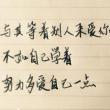 与其等着别人来爱你
不如自己学着
努力多爱自己一点